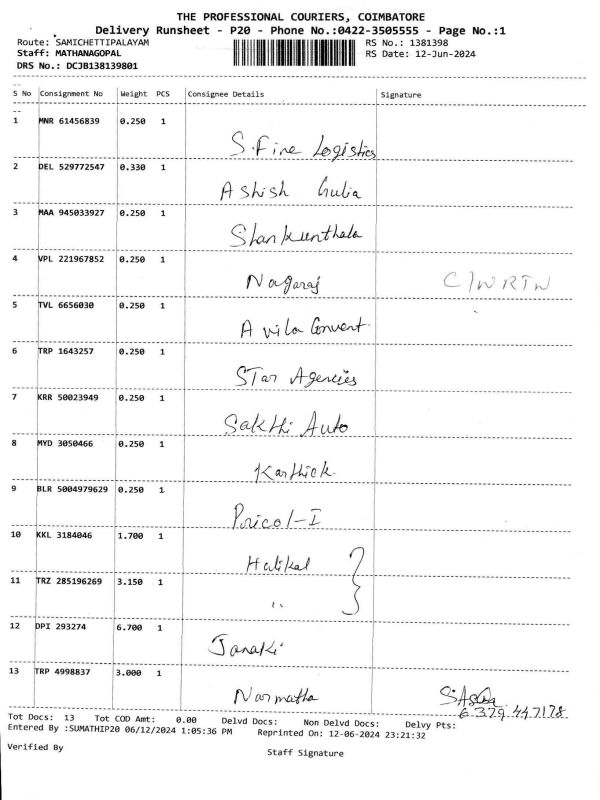 THE PROFESSIONAL COURIERS, COIMBATORE
Delivery Runsheet - P20 - Phone No.:0422-3505555 - Page No.:1
Route: SAMICHETTIPALAYAM RS No.: 1381398
Staff: MATHANAGOPAL RS Date: 12-Jun-2024
DRS No.: DCJB138139801
S No Consignment No Weight PCS Consignee Details Signature
1 MNR 61456839 0.250 1
S. Fine Logistics
2 DEL 529772547 0.330 1
Ashish Gulia
3 MAA 945033927 0.250 1
Shankunthala
4 VPL 221967852 0.250 1
Nagaraj C/W RTW
5 TVL 6656030 0.250 1
Avila Convent
6 TRP 1643257 0.250 1
STar Agencies
7 KRR 50023949 0.250 1
Sakthi Auto
8 MYD 3050466 0.250 1
Karthick
9 BLR 5004979629 0.250 1
Pricol-I
10 KKL 3184046 1.700 1
11 TRZ 285196269 3.150 1
"
12 DPI 293274 6.700 1
Janaki
13 TRP 4998837 3.000 1
Narmatha
6379447178
Tot Docs: 13 Tot COD Amt: 0.00 Delvd Docs: Non Delvd Docs: Delvy Pts:
Entered By :SUMATHIP20 06/12/2024 1:05:36 PM Reprinted On: 12-06-2024 23:21:32
Verified By
Staff Signature